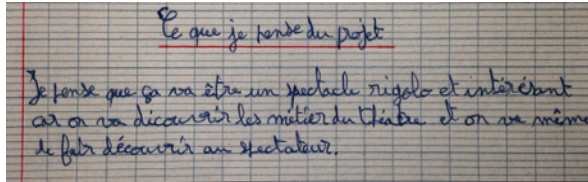 Ce que je pense du projet
Je pense que ça va être un spectacle rigolo et intérésant
car on va découvrir les métier du théatre et on va même
le fair découvrir au spectateur.